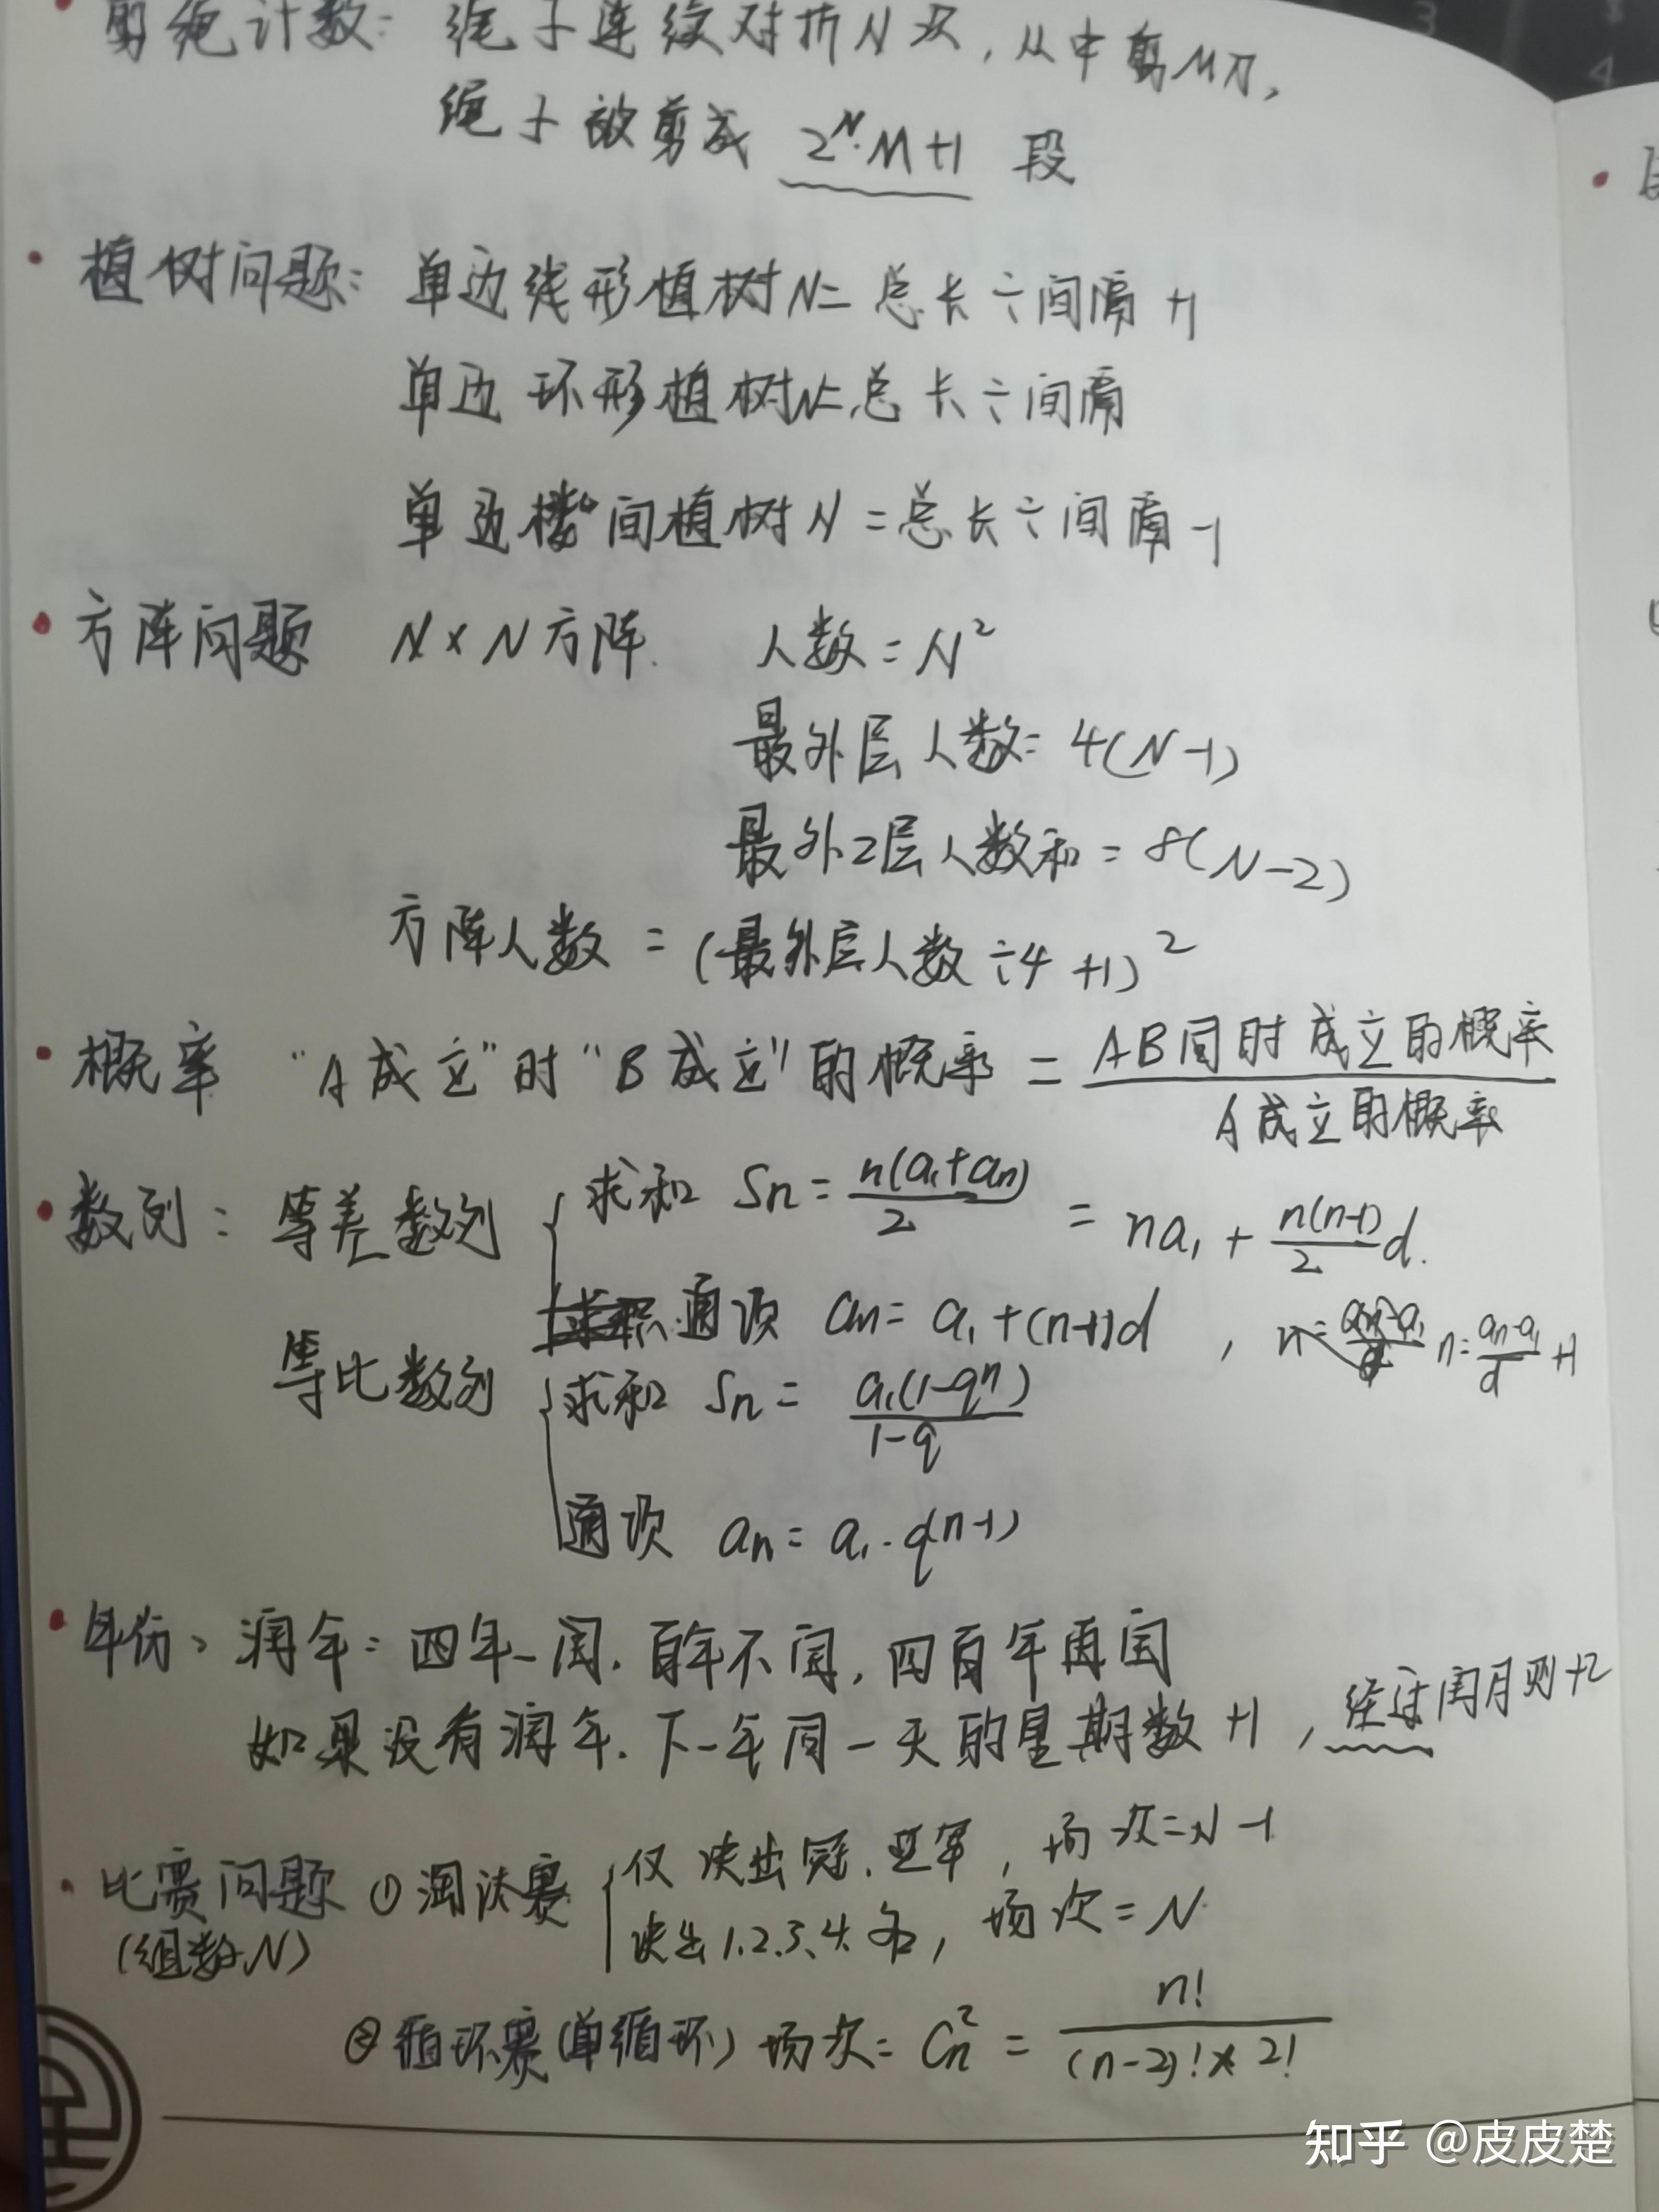 剪绳计数: 绳子连续对折N次, 从中剪M刀,
绳子被剪成 2^N·M+1 段
植树问题: 单边线形植树N=总长÷间隔+1
单边环形植树N=总长÷间隔
单边楼间植树N=总长÷间隔-1
方阵问题 N×N方阵. 人数=N²
最外层人数=4(N-1)
最外2层人数和=8(N-2)
方阵人数=(最外层人数÷4+1)²
概率 "A成立"时"B成立"的概率 = AB同时成立的概率 / A成立的概率
数列: 等差数列 { 求和 Sn = n(a₁+an)/2 = na₁ + n(n-1)/2 d.
通项 an = a₁+(n-1)d , n = (an-a₁)/d +1
等比数列 { 求和 Sn = a₁(1-qⁿ)/(1-q)
通项 an = a₁·q(n-1)
年份、润年: 四年一闰. 百年不闰, 四百年再闰
如果没有润年. 下一年同一天的星期数+1, 经过闰月则+2
比赛问题 ①淘汰赛 { 仅决出冠.亚军, 场次=N-1
(组数N) 决出1.2.3.4.名, 场次=N
②循环赛(单循环) 场次= Cn² = n! / (n-2)!×2!
知乎 @皮皮楚